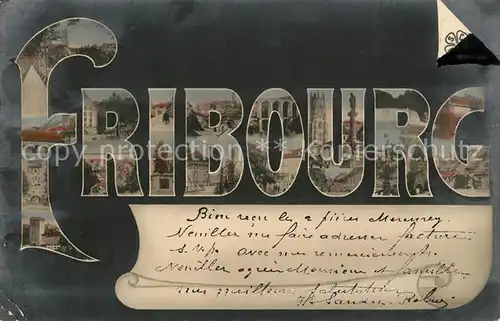 FRIBOURG
Bien reçu les 2 pièces Mercurey.
Veuillez m'en faire adresser facture
s. v. p. avec mes remerciements.
Veuillez agréer Monsieur et famille
mes meilleures salutations